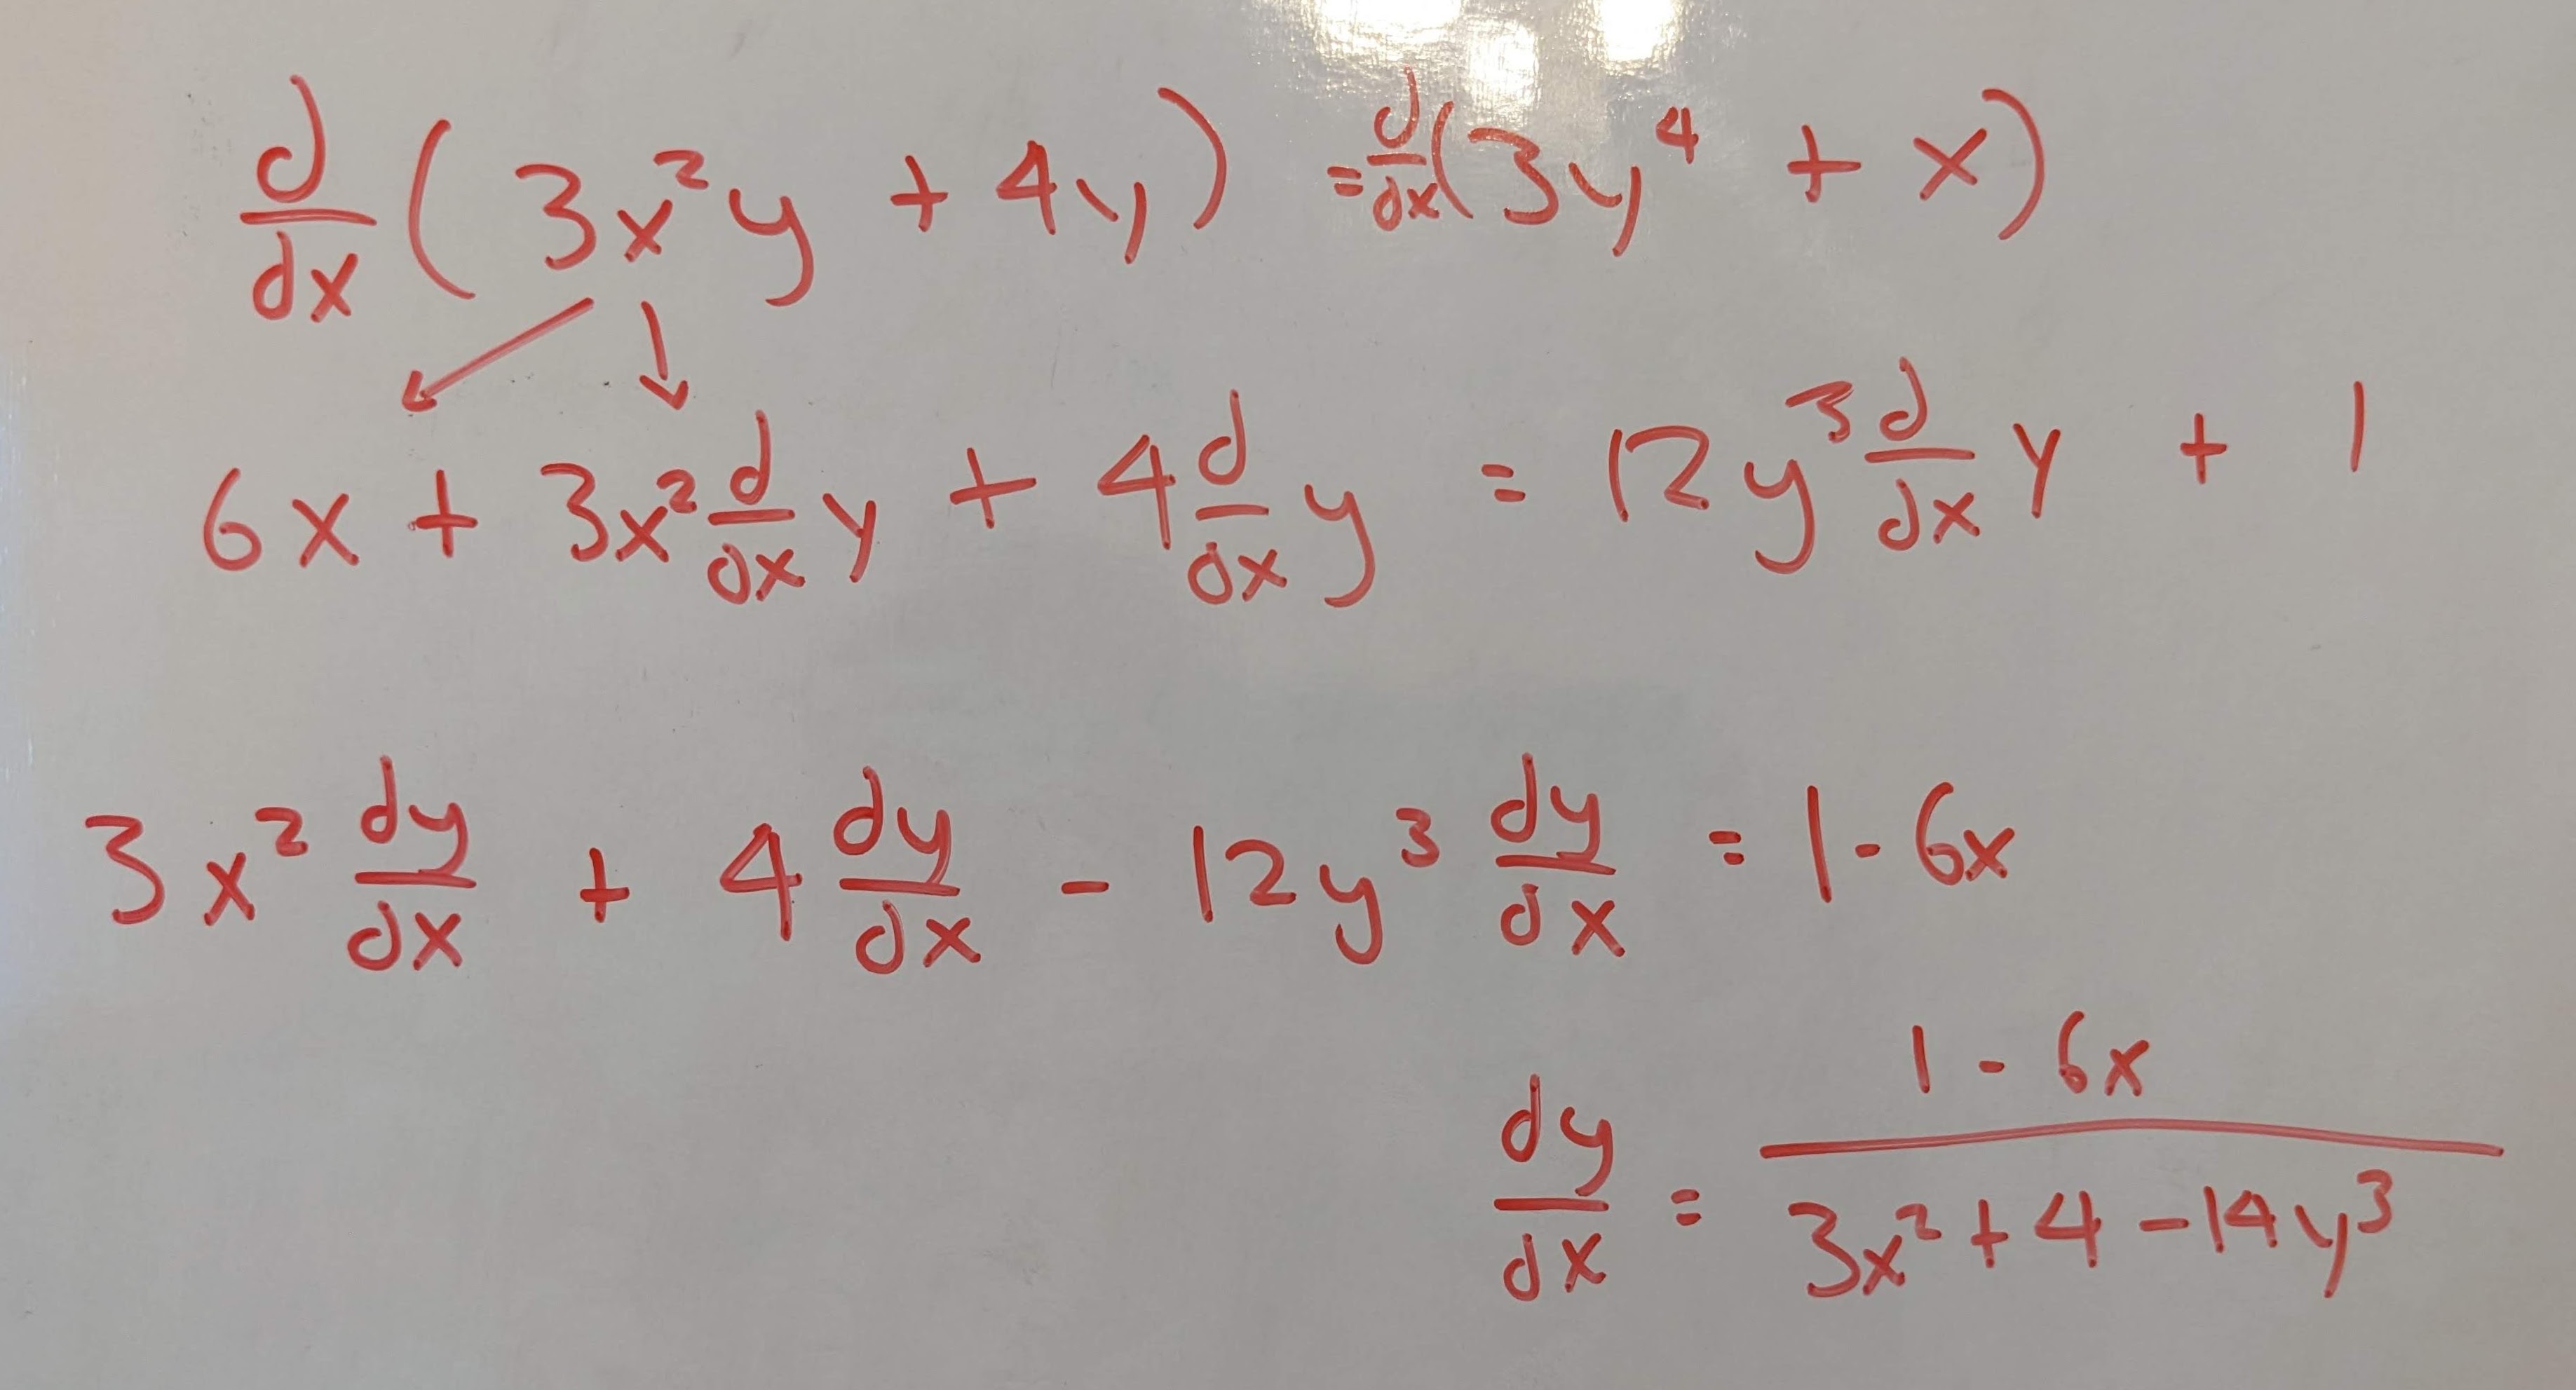 d/dx (3x²y + 4y) = d/dx (3y⁴ + x)
6x + 3x² d/dx y + 4 d/dx y = 12y³ d/dx y + 1
3x² dy/dx + 4 dy/dx - 12y³ dy/dx = 1 - 6x
dy/dx = (1 - 6x)/(3x² + 4 - 14y³)